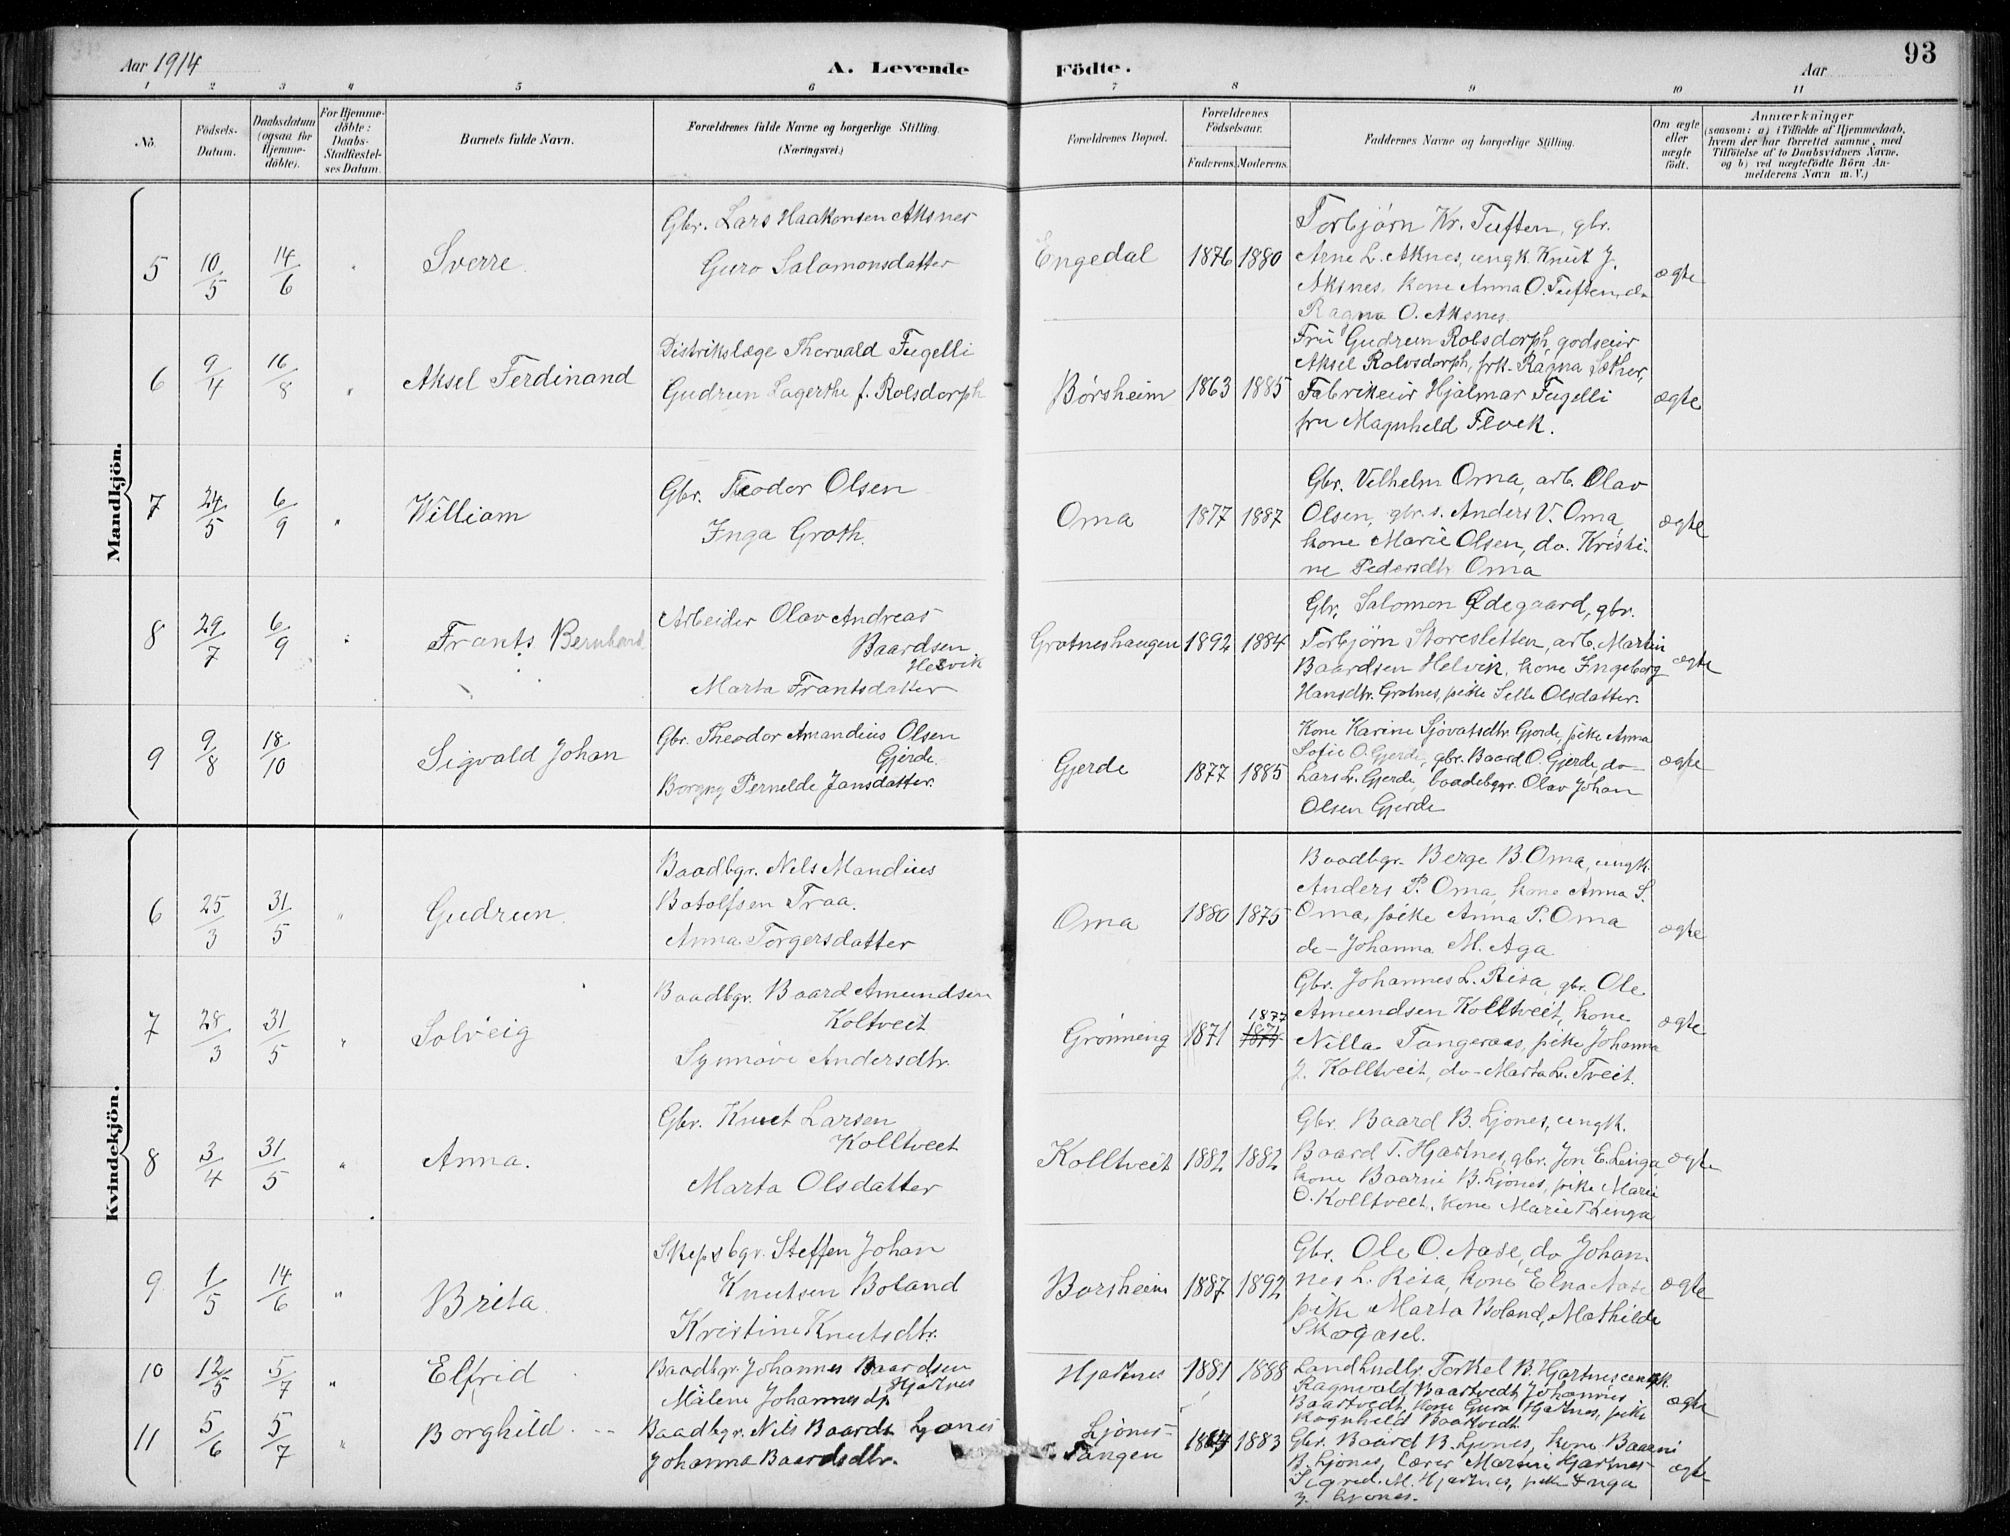 93
Aar 1914
A. Levende Födte.
Aar
1 2 3 4 5 6 7 8 9 10 11
No.
Födsels-Datum.
Daabsdatum (ogsaa for Hjemmedöbte).
For Hjemmedöbte: Daabs-Stadfæstelses Datum.
Barnets fulde Navn.
Forældrenes fulde Navne og borgerlige Stilling.
(Næringsvei.)
Forældrenes Bopæl.
Forældrenes Födselsaar.
Faderens. Moderens.
Faddernes Navne og borgerlige Stilling.
Om ægte eller uægte födt.
Anmærkninger
(saasom: a) i Tilfælde af Hjemmedaab,
hvem der har forrettet samme, med
Tilföielse af to Daabsvidners Navne,
og b) ved uægtefödte Börn Anmelderens Navn m. V.)
Mandkjön.
5 10/5 14/6 " Sverre
Gbr. Lars Haakonsen Aksnes
Guro Salomonsdatter
Engedal 1876 1880
Torbjørn Kr. Tuften, gbr.
Arne L. Aknes, ungk. Knut J.
Aksnes, kone Anna O. Tuften, do-
Ragna O. Aksnes.
ægte
6 9/4 16/8 " Aksel Ferdinand
Distrikslæge Thorvald Fugelli
Gudrun Lagerthe f. Rolsdorph
Børsheim 1863 1885
Fru Gudrun Rolsdorph, godseier
Aksel Rolvsdorph, frk. Ragna Sæther,
Fabrikeier Hjalmar Fugelli
fru Magnhild Flock.
ægte
7 24/5 6/9 " William
Gbr. Teodor Olsen
Inga Groth.
Oma 1877 1887
Gbr. Vilhelm Oma, arb. Olav
Olsen, gbr. s. Anders V. Oma,
kone Marie Olsen, do. Kristi-
ne Pedersdtr Oma
ægte
8 29/7 6/9 " Frants Bernhard
Arbeider Olav Andreas
Baardsen
Helvik
Marta Frantsdatter
Grotneshaugen 1892 1884
Gbr. Salomon Ødegaard, gbr.
Torbjørn Storesletten, arb. Martin
Baardsen Helvik, kone Ingeborg
Hansdtr. Grotnes, pike Selle Olsdatter.
ægte
9 9/8 18/10 Sigvald Johan
Gbr. Theodor Amandius Olsen
Gjerde
Borgny Pernelde Jansdatter.
Gjerde 1877 1885
Kone Karine Sjovatsdtr Gjerde, pike Anna
Sofie O. Gjerde, gbr. Baard O. Gjerde, do-
Lars L. Gjerde, baadebgr. Olav Johan
Olsen Gjerde
ægte
Kvindekjön.
6 25/3 31/5 " Gudrun.
Baadbgr. Nils Mandius
Botolfsen Traa.
Anna Torgersdatter
Oma 1880 1875
Baadbgr. Berge B. Oma, ungk.
Anders P. Oma, kone Anna S.
Oma, pike Anna P. Oma
do- Johanna M. Aga
ægte
7 28/3 31/5 " Solveig
Baadbgr. Baard Amundsen
Koltveit
Synnøve Andersdtr.
Grønneng 1871 1877
Gbr. Johannes L. Risa, gbr. Ole
Amundsen Kolltveit, kone
Nilla Tangeraas, pike Johanna
J. Kolltveit, do- Marta L. Tveit.
ægte
8 3/4 31/5 " Anna.
Gbr. Knut Larsen
Kolltveit
Marta Olsdatter
Kolltveit 1882 1882
Gbr. Baard B. Ljones, ungk.
Baard T. Hjartnes, gbr. Jon E. Linga
kone Baarni B. Ljones, pike Marie
O. Kolltveit, kone Marie T. Linga
ægte
9 1/5 14/6 " Brita.
Skipsbgr. Steffen Johan
Knutsen Boland
Kristine Knutsdtr.
Borsheim 1887 1892
Gbr. Ole O. Aase, do Johan-
nes L. Risa, kone Elna Aase
pike Marta Boland, Mathilde
Skogasel.
ægte
10 12/5 5/7 " Elfrid
Baadbgr. Johannes Baardsen
Hjartnes
Malene Johannesdt.
Hjartnes 1881 1888
Landhndlr. Torkel B. Hjartnes ungk.
Ragnvald Baartvedt, Johannes
Baartvedt, kone Guro Hjartnes, pike
Ragnhild Baartvedt
ægte
11 5/6 5/7 " Borghild
Baadbgr. Nils Baardt. Ljones
Johanna Baardsdtr.
Ljones-
Tangen 1883
Gbr. Baard B. Ljones, kone Baarni
B. Ljones, lærer Martin Hjartnes
Sigrid M. Hjartnes, pike Inga
J. Ljones.
ægte